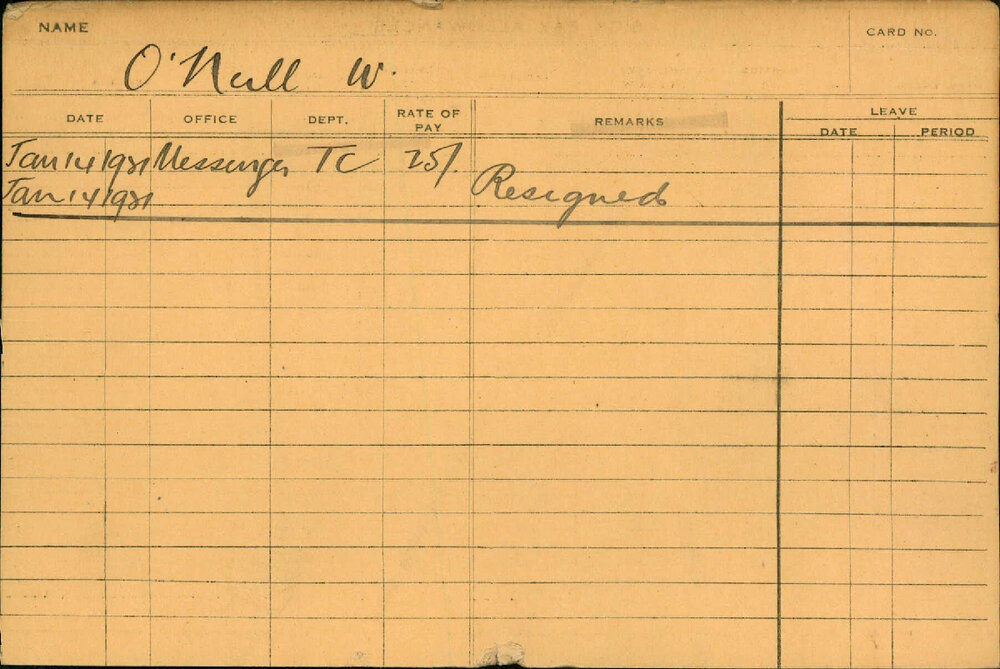 NAME
CARD NO.
O'Neill W.
DATE OFFICE DEPT. RATE OF PAY REMARKS LEAVE
DATE PERIOD
Jan 14 1931 Messenger TC 25/.
Jan 14 1931 Resigned